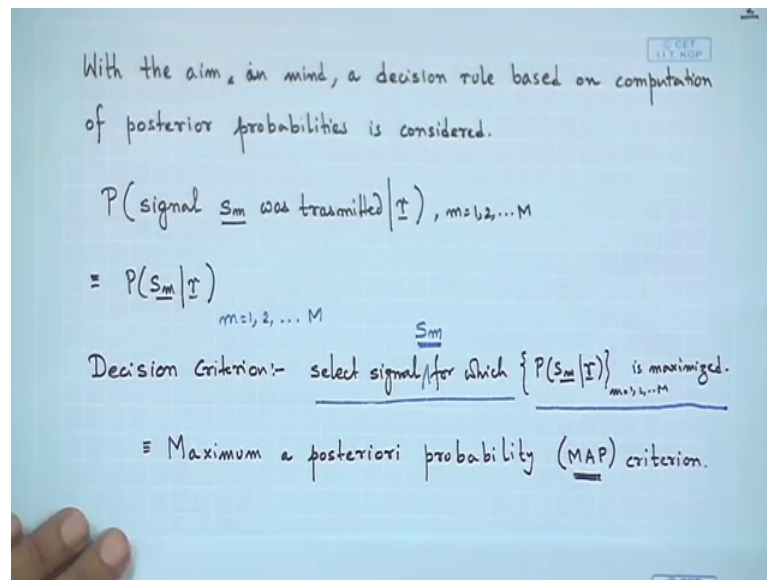 © CET
I.I.T. KGP
With the aim, in mind, a decision rule based on computation
of posterior probabilities is considered.
P(signal Sm was trasmitted|r), m=1,2,...M
≡ P(Sm|r)
m=1, 2, ... M
Sm
Decision Criterion:- select signal ∧ for which {P(Sm|r)} is maximized.
m=1,2,..M
≡ Maximum a posteriori probability (MAP) criterion.